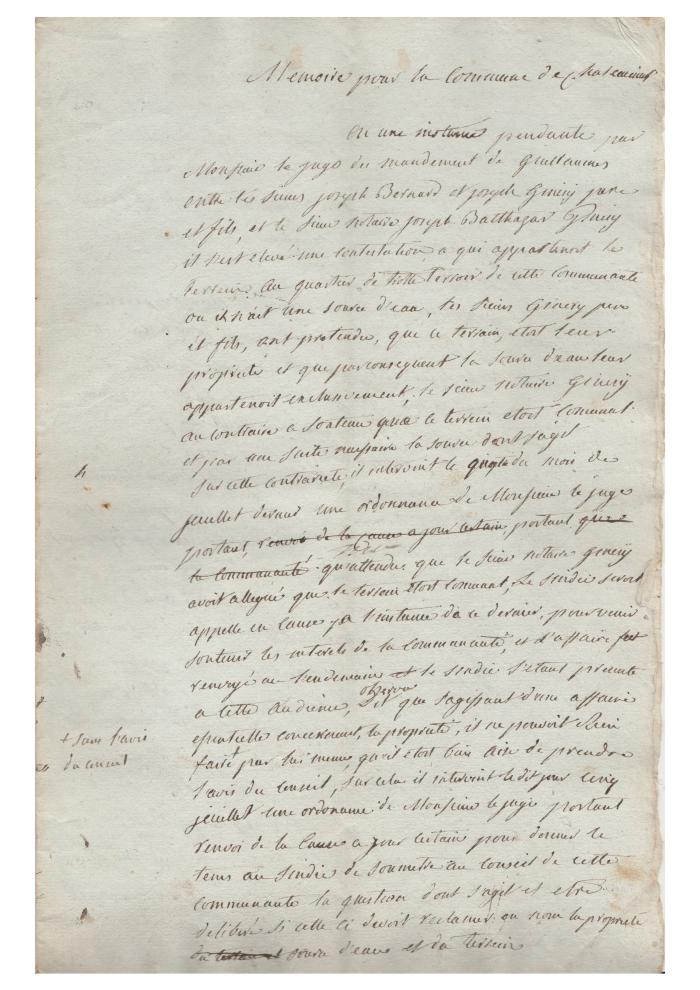 Memoire pour la Commune de Chateauneuf
En une instance pendante par
Monsieur le juge du mandement de Guillaumes
entre les sieurs joseph Bernard et joseph Ginesy pere
et fils, et le sieur notaire joseph Balthazar Ginesy
il s'est elevé une contestation a qui appartenoit le
terrein au quartier de terroir de cette Communauté
ou il nait une source d'eau, les sieurs Ginesy pere
et fils, ont pretendu, que ce terrain, etoit leur
proprieté et que parconsequent la source d'eau leur
appartenoit exclusivement, le sieur notaire Ginesy
au contraire a soutenu que ce terrein etoit Communal
et par une suite necessaire la source dont s'agit
sur cette contrarieté, il intervint le quatre du mois de
jeuillet dernier une ordonnance de Monsieur le juge
portant, renvoi de la cause a jour certain, portant, que
la Communauté qu'attendu que le sieur notaire Ginesy
avoit allegué que le terrein etoit Comunal, le sindic seroit
appellé en Cause a l'instance de ce dernier, pour venir
soutenir les interets de la Communauté, et l'affaire fut
renvoyé au lendemain et le sindic s'etant presenté
a cette Audience, observa
dit que s'agissant d'une affaire
essentielle concernant, la proprieté, il ne pouvoit Rien
faire + par lui meme, qu'il etoit bien aise de prendre
+ sans l'avis
du conseil
l'avis du Conseil, sur cela il intervint le dit jour cinq
jeuillet une ordonnance de Monsieur le juge portant
renvoi de la Cause a jour certain pour donner le
tems au sindic de soumettre au conseil de cette
communauté la question dont s'agit et etre
delibéré si celle ci devoit reclamer en nom la proprieté
du terrein et source d'eau et du terrein
4